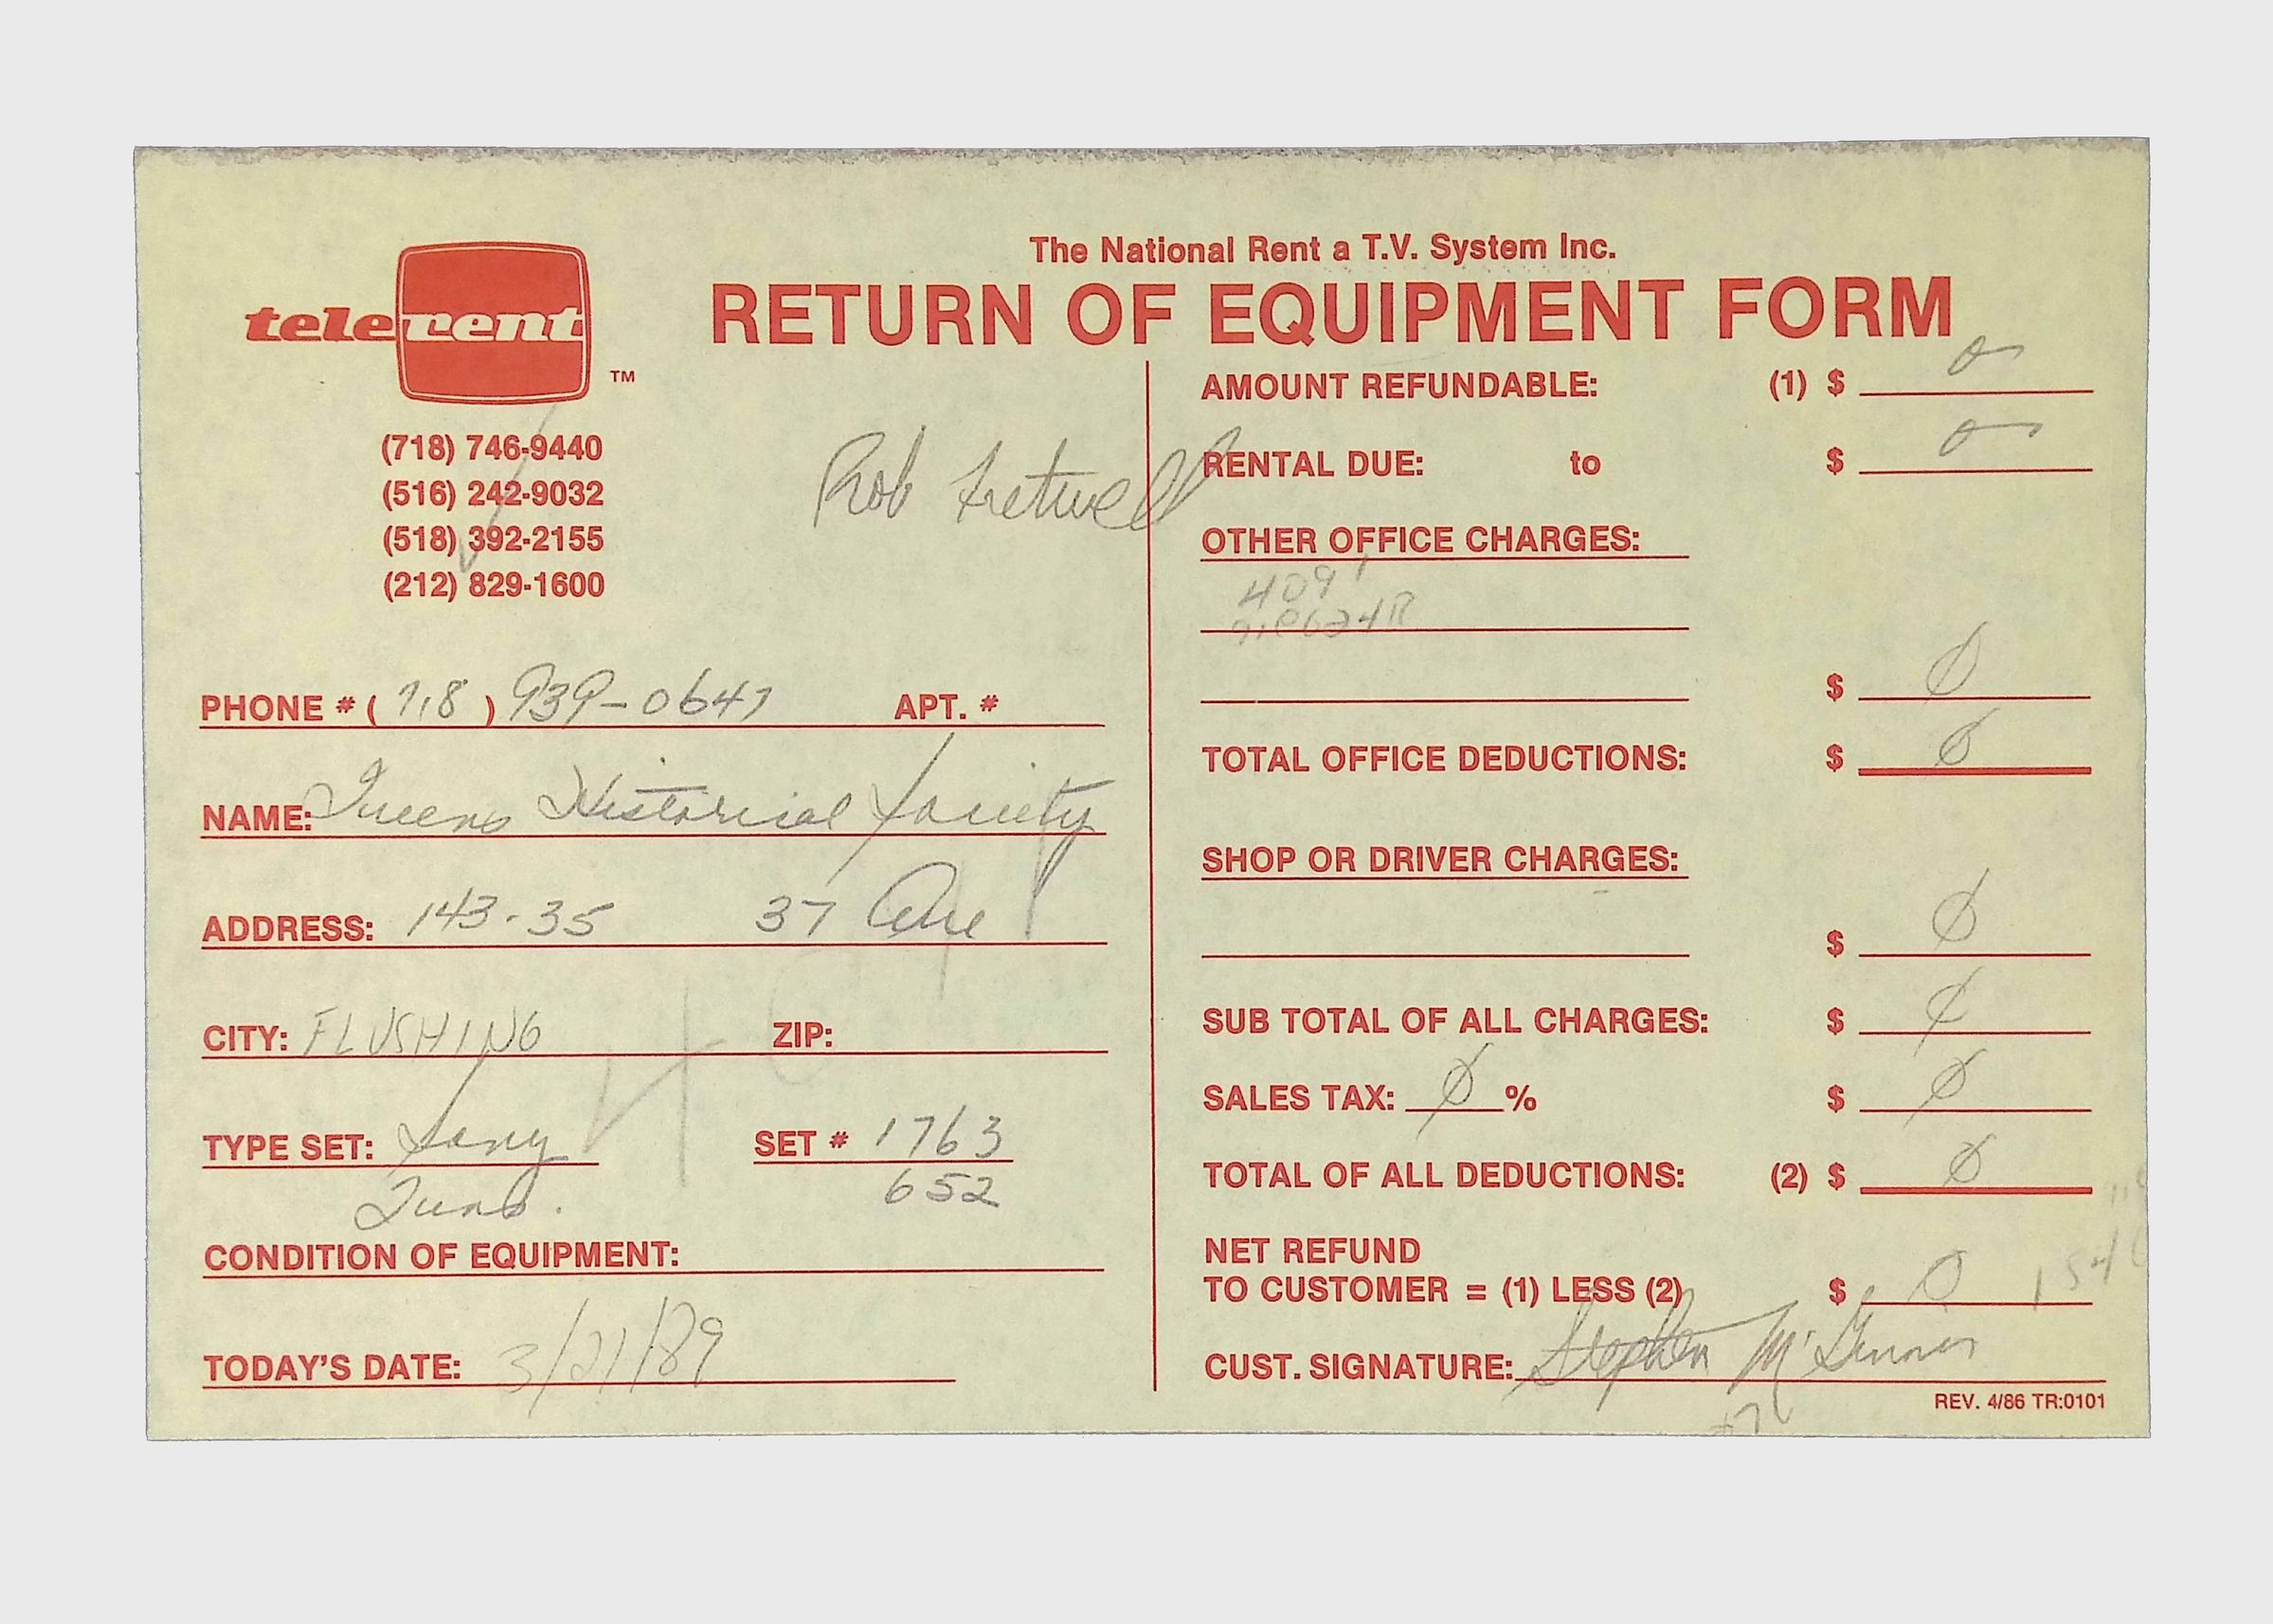 The National Rent a T.V. System Inc.
RETURN OF EQUIPMENT FORM
telerent TM
(718) 746-9440
(516) 242-9032
(518) 392-2155
(212) 829-1600
Rob Fretwell
PHONE # ( 718 ) 939-0647 APT. #
NAME: Queens Historical Society
ADDRESS: 143-35 37 Ave
CITY: FLUSHING ZIP:
TYPE SET: Sony SET # 1763
652
CONDITION OF EQUIPMENT:
TODAY'S DATE: 3/21/89
AMOUNT REFUNDABLE: (1) $ 0
RENTAL DUE: to $ 0
OTHER OFFICE CHARGES:
409
$ 0
TOTAL OFFICE DEDUCTIONS: $ 0
SHOP OR DRIVER CHARGES:
$ 0
SUB TOTAL OF ALL CHARGES: $ 0
SALES TAX: 0 % $ 0
TOTAL OF ALL DEDUCTIONS: (2) $ 0
NET REFUND
TO CUSTOMER = (1) LESS (2) $ 0
CUST. SIGNATURE: Stephen
REV. 4/86 TR:0101